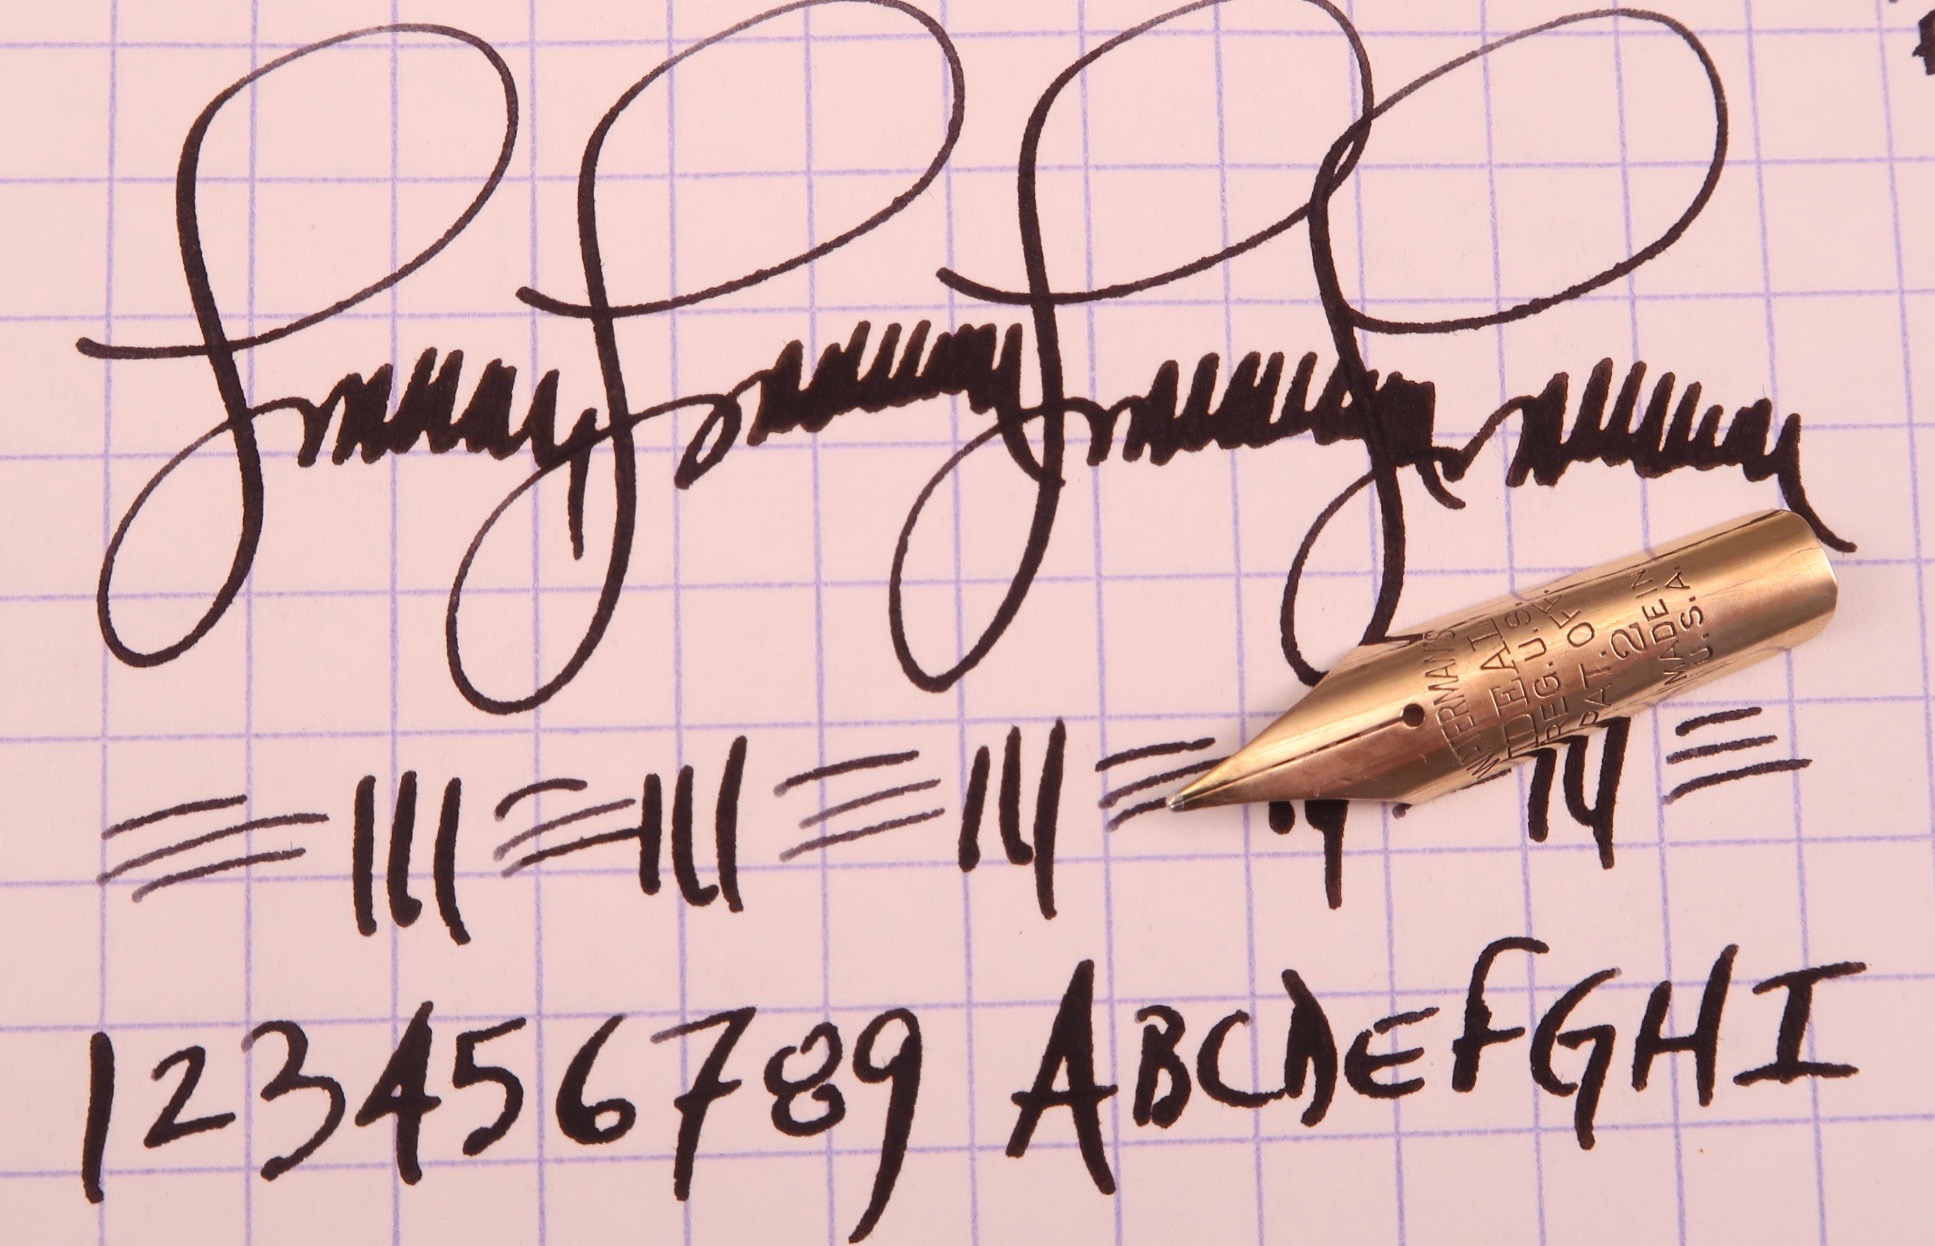 WATERMAN'S
IDEAL
REG.U.S.
PAT.OFF.
2
MADE IN
U.S.A.
123456789 ABCDEFGHI